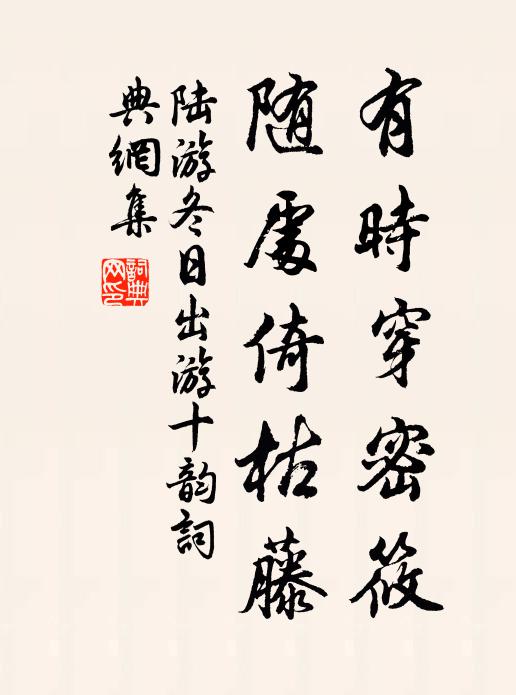 有時穿密筱
随處倚枯藤
陆游冬日出游十韵詞
典網集
詞典网印